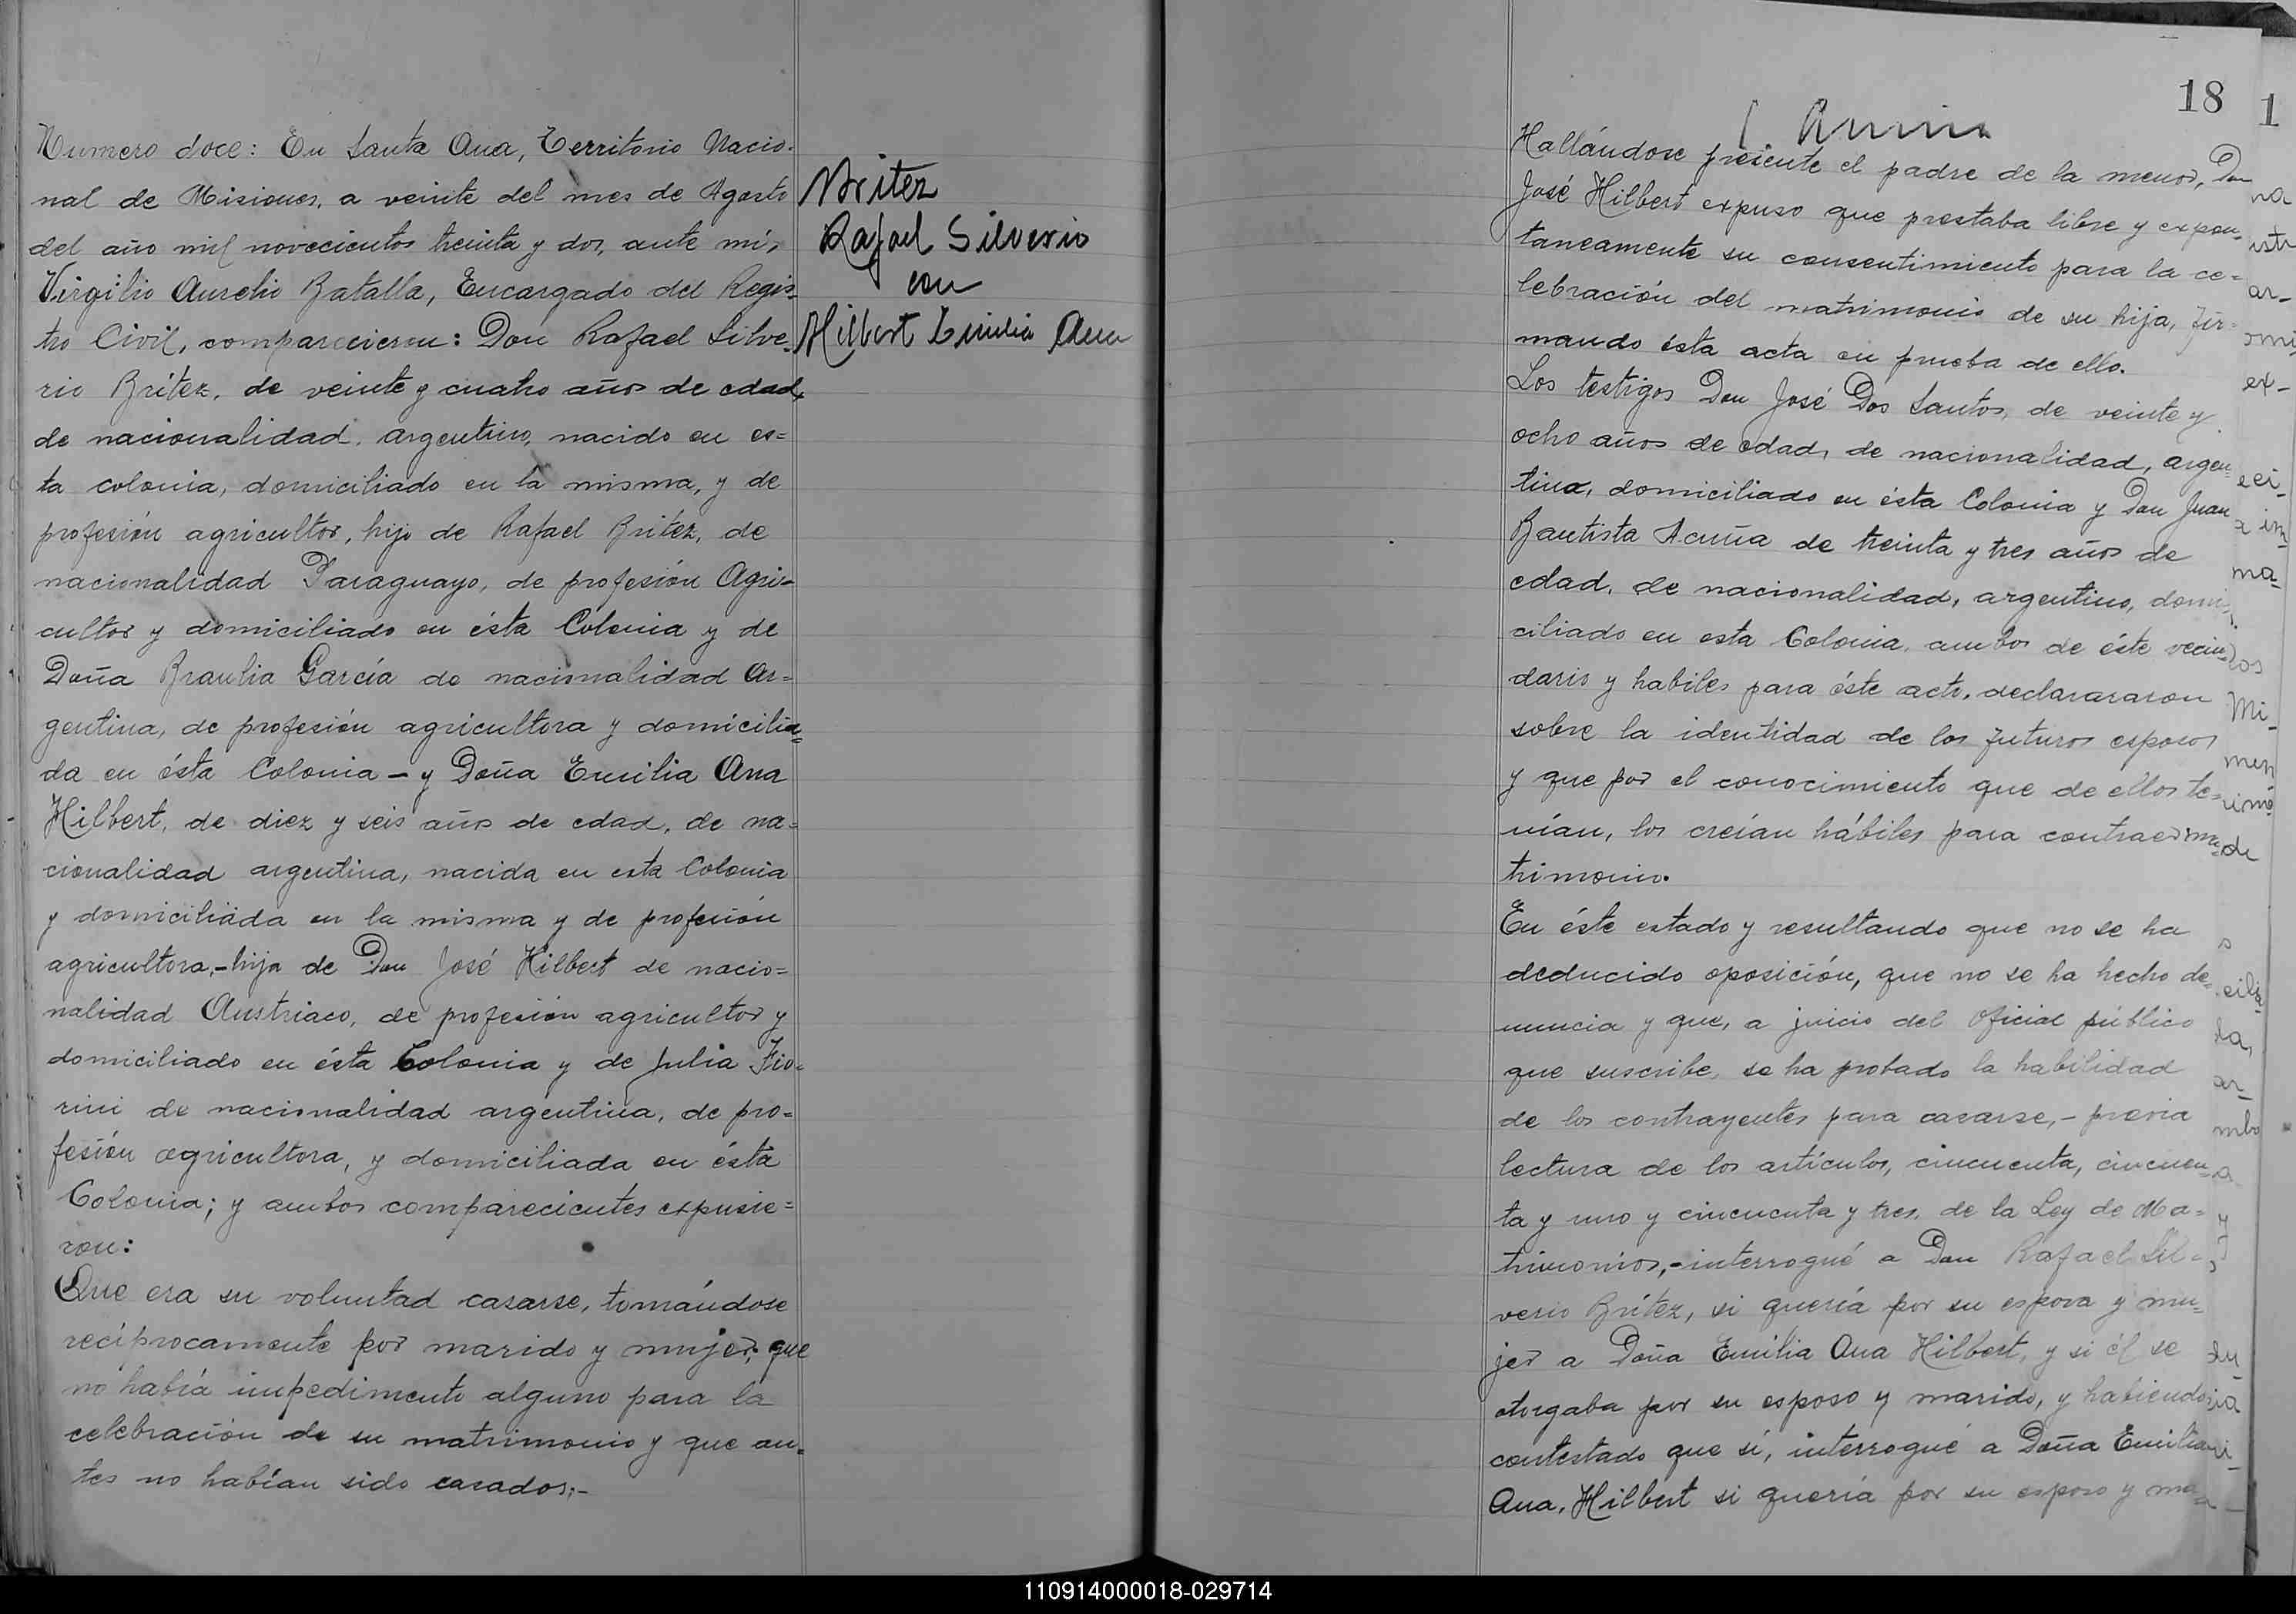 Numero doce: En Santa Ana, Territorio Nacio-
nal de Misiones, a veinte del mes de Agosto
del año mil novecientos treinta y dos, ante mí,
Virgilio Aurelio Batalla, Encargado del Regis-
tro Civil, comparecieron: Don Rafael Silve-
rio Brítez, de veinte y cuatro años de edad,
de nacionalidad, argentino, nacido en es=
ta colonia, domiciliado en la misma, y de
profesión agricultor, hijo de Rafael Brítez, de
nacionalidad Paraguayo, de profesión Agri-
cultor y domiciliado en ésta Colonia y de
Doña Braulia García de nacionalidad Ar=
gentina, de profesión agricultora y domicilia=
da en ésta Colonia - y Doña Emilia Ana
Hilbert, de diez y seis años de edad, de na=
cionalidad argentina, nacida en esta Colonia
y domiciliada en la misma y de profesión
agricultora,- hija de Don José Hilbert de nacio=
nalidad Austriaco, de profesión agricultor y
domiciliado en ésta Colonia y de Julia Fio-
rini de nacionalidad argentina, de pro=
fesión agricultora, y domiciliada en ésta
Colonia; y ambos comparecientes expusie=
ron:
Que era su voluntad casarse, tomándose
recíprocamente por marido y mujer; que
no había impedimento alguno para la
celebración de su matrimonio y que an=
tes no habían sido casados;-
Britez
Rafael Silverio
con
Hilbert Emilia Ana
18
1
Hallándose presente el padre de la menor, Don
José Hilbert expuso que prestaba libre y expon-
taneamente su consentimiento para la ce=
lebración del matrimonio de su hija, fir=
mando ésta acta en prueba de ello.
Los testigos Don José Dos Santos, de veinte y
ocho años de edad, de nacionalidad, argen-
tina, domiciliado en ésta Colonia y Don Juan
Bautista Acuña de treinta y tres años de
edad, de nacionalidad, argentino, domi-
ciliado en esta Colonia, ambos de éste vecin-
dario y habiles para éste acto, declarararon
sobre la identidad de los futuros esposos
y que por el conocimiento que de ellos te=
nían, los creían hábiles para contraer ma-
trimonio.
En éste estado y resultando que no se ha
deducido oposición, que no se ha hecho de-
nuncia y que, a juicio del Oficial público
que suscribe, se ha probado la habilidad
de los contrayentes para casarse,- previa
lectura de los artículos, cincuenta, cincuen-
ta y uno y cincuenta y tres, de la Ley de Ma=
trimonios,- interrogué a Don Rafael Sil=
verio Brítez, si quería por su esposa y mu-
jer a Doña Emilia Ana Hilbert, y si él se
otorgaba por su esposo y marido, y habiendo
contestado que sí, interrogué a Doña Emilia
Ana, Hilbert si quería por su esposo y ma-
110914000018-029714